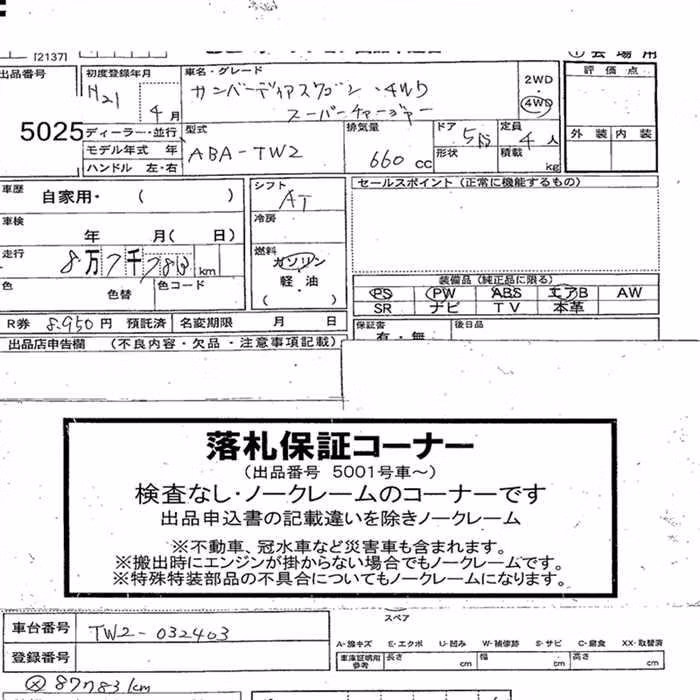 [2137]
出品番号
初度登録年月
車名・グレード
H21
4月
サンバーディアスワゴン・4WD
スーパーチャージャー
2WD
・
4WD
評価点
外装 内装
5025
ディーラー・並行
モデル年式 年
ハンドル 左・右
型式
ABA-TW2
排気量
660 cc
ドア
5Ds
形状
定員
4人
積載
kg
車歴
自家用・ ( )
車検
年 月( 日)
走行
8万7千783 km
色
色替
色コード
シフト
AT
冷房
燃料
ガソリン
軽・油
( )
セールスポイント (正常に機能するもの)
装備品 (純正品に限る)
PS PW ABS エアB AW
SR ナビ TV 本革
R券 8,950円 預託済 名変期限 月 日
保証書
有・無
後日品
出品店申告欄 (不良内容・欠品・注意事項記載)
落札保証コーナー
(出品番号 5001号車~)
検査なし・ノークレームのコーナーです
出品申込書の記載違いを除きノークレーム
※不動車、冠水車など災害車も含まれます。
※搬出時にエンジンが掛からない場合でもノークレームです。
※特殊特装部品の不具合についてもノークレームになります。
スペア
車台番号 TW2-032403
登録番号
A-線キズ E-エクボ U-凹み W-補修跡 S-サビ C-腐食 XX-取替済
車庫証明用
参考
長さ cm 幅 cm 高さ cm
㋱ 87783km